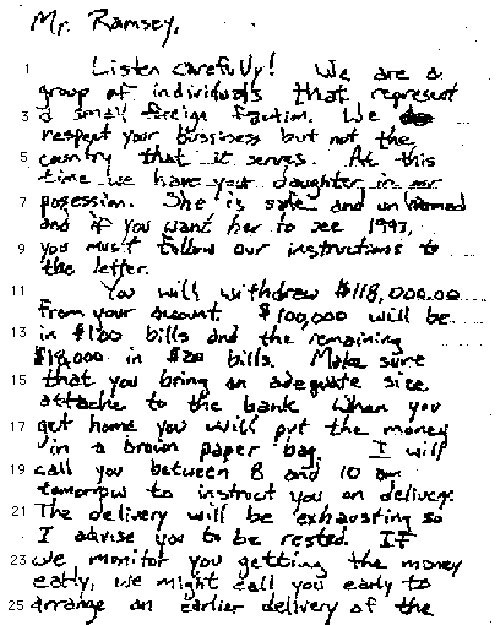 Mr. Ramsey,
1 Listen carefully! We are a
group of individuals that represent
3 a small foreign faction. We
respect your bussiness but not the
5 country that it serves. At this
time we have your daughter in our
7 posession. She is safe and unharmed
and if you want her to see 1997,
9 you must follow our instructions to
the letter.
11 You will withdraw $118,000.00
from your account. $100,000 will be
13 in $100 bills and the remaining
$18,000 in $20 bills. Make sure
15 that you bring an adequate size
attache to the bank. When you
17 get home you will put the money
in a brown paper bag. I will
19 call you between 8 and 10 am
tomorrow to instruct you on delivery.
21 The delivery will be exhausting so
I advise you to be rested. If
23 we monitor you getting the money
early, we might call you early to
25 arrange an earlier delivery of the